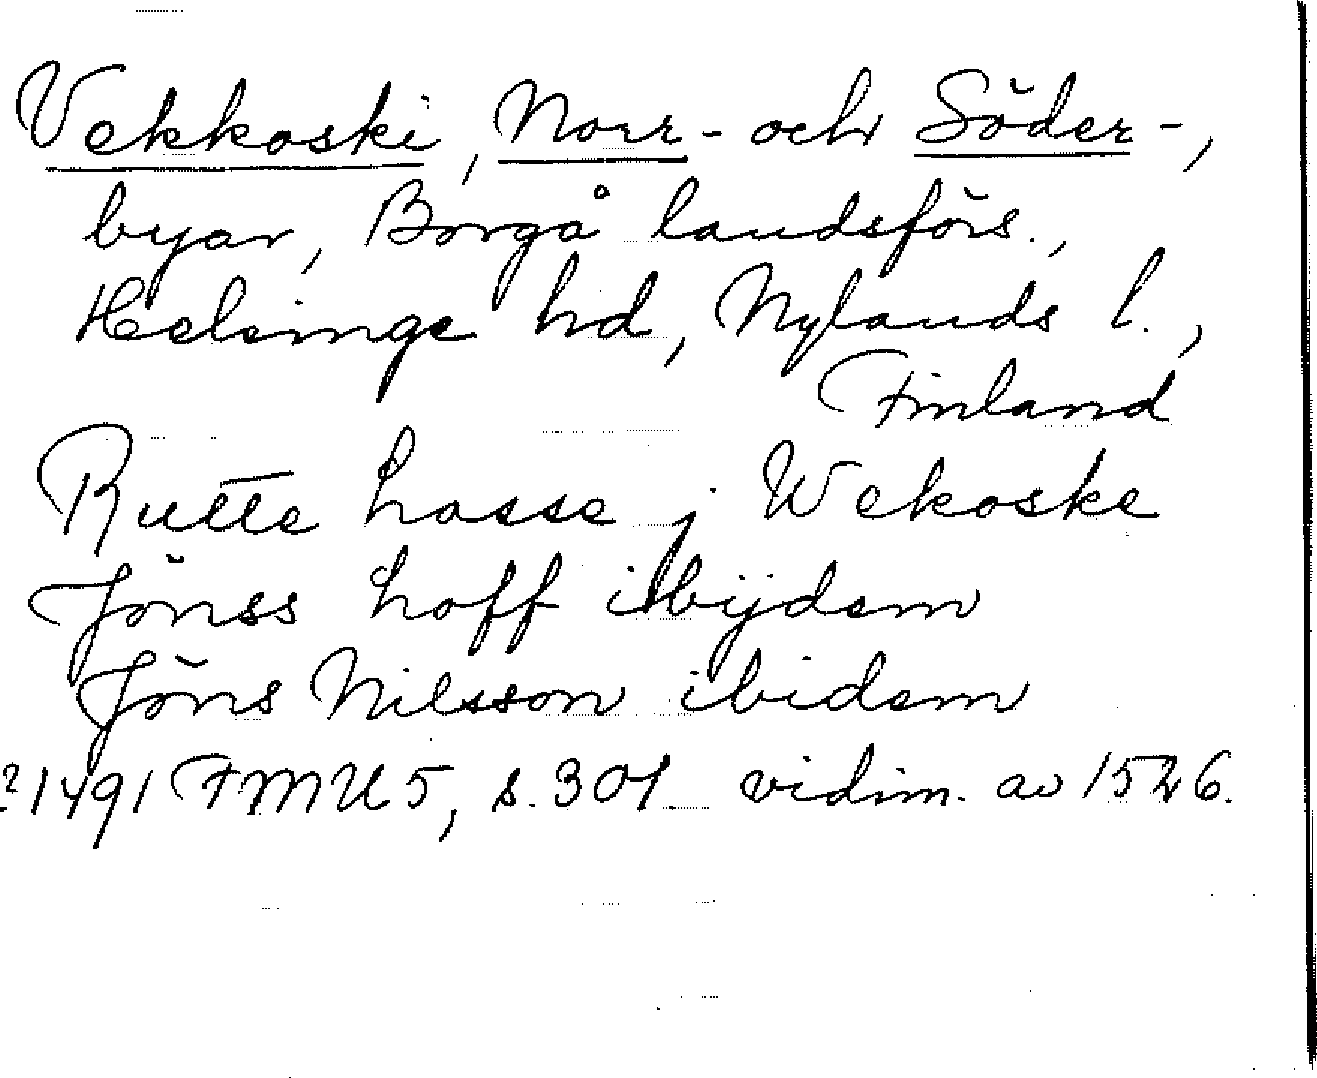 Vekkoski, Norr- och Söder-,
byar, Borgå landsförs.,
Helsinge hd, Nylands l.,
Finland
Rutte Lasse j Wekoske
Jönss Loff ibijdem
Jöns Nilsson ibidem
?1491 FMU 5, s. 301. vidim. av 1526.